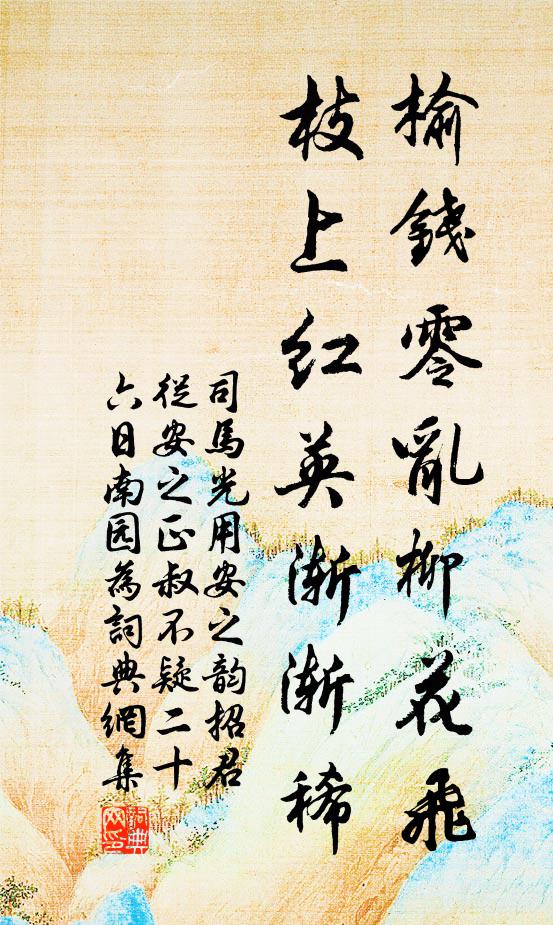 榆錢零亂柳花飛
枝上紅英漸漸稀
司馬光用安之韵招君
從安之正叔不疑二十
六日南园為詞典網集
詞典
网印